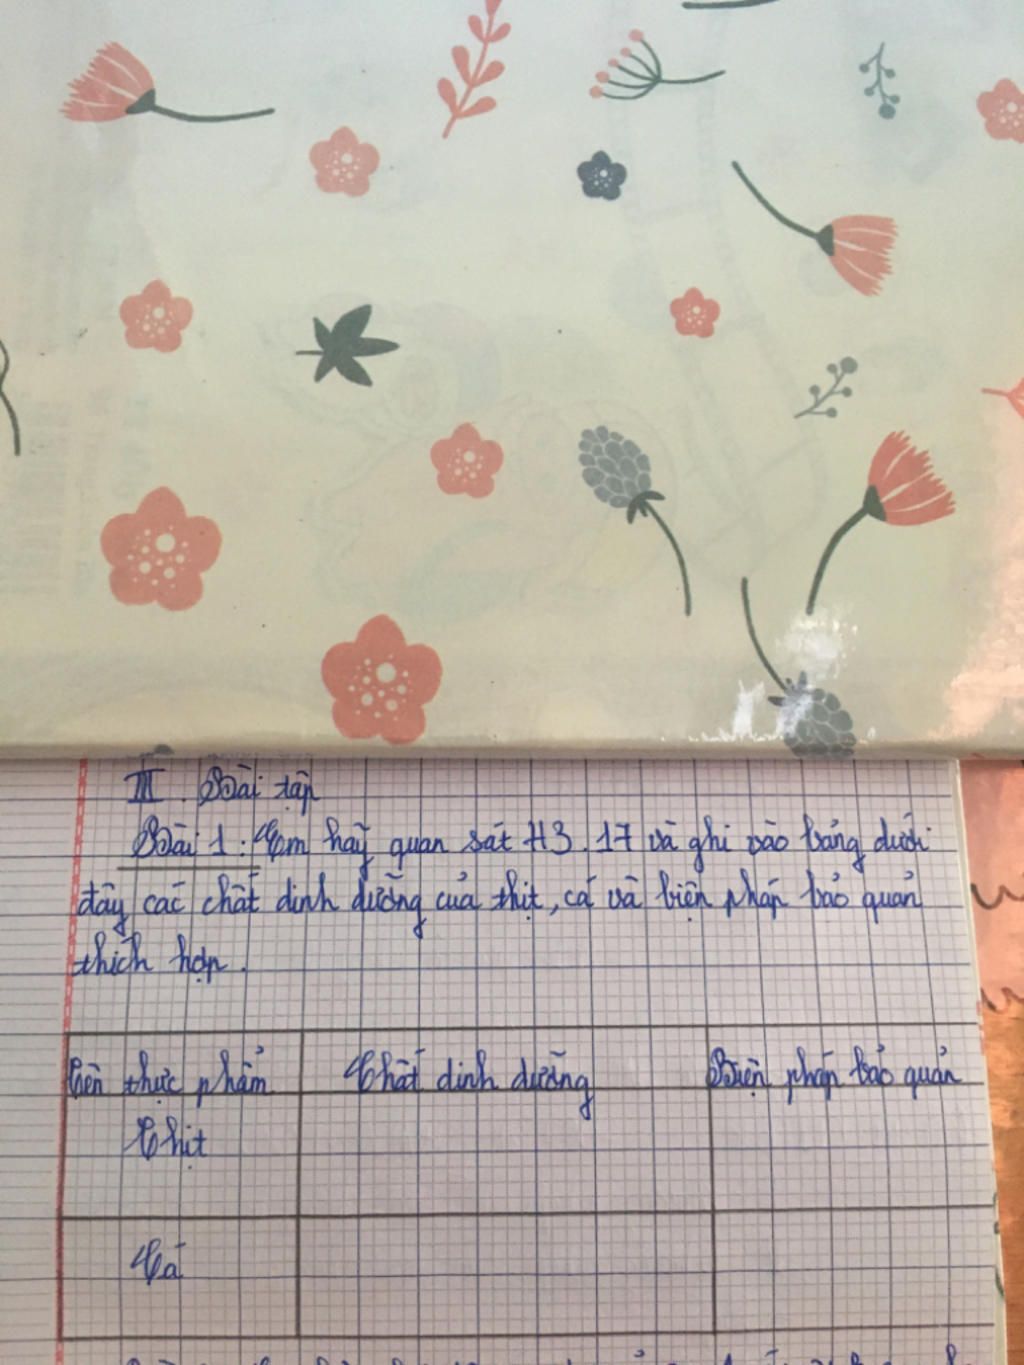 III. Bài tập
Bài 1: Em hãy quan sát H3.17 và ghi vào bảng dưới
đây các chất dinh dưỡng của thịt, cá và biện pháp bảo quản
thích hợp.
Tên thực phẩm Chất dinh dưỡng Biện pháp bảo quản
Thịt
Cá